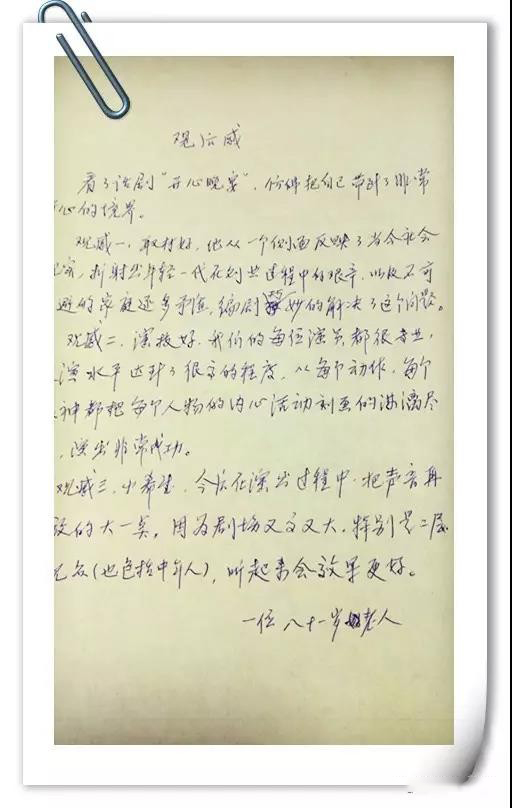 观后感
看了话剧"开心晚宴",仿佛把自己带到了非常
心的境界。
观感一,取材好,他从一个侧面反映了当今社会
折射出年轻一代在创业过程中的艰辛,以及不可
避的家庭还多利益,编剧巧妙的解决了这个问题。
观感二,演技好,我们的每位演员都很专业,
演水平达到了很高的程度,从每个动作,每个
神都把每个人物的内心活动刻画的淋漓尽
,演出非常成功。
观感三,小希望,今后在演出过程中,把声音再
放的大一类,因为剧场又高又大,特别是二层
观众(也包括中年人),听起来会效果更好。
一位八十一岁老人